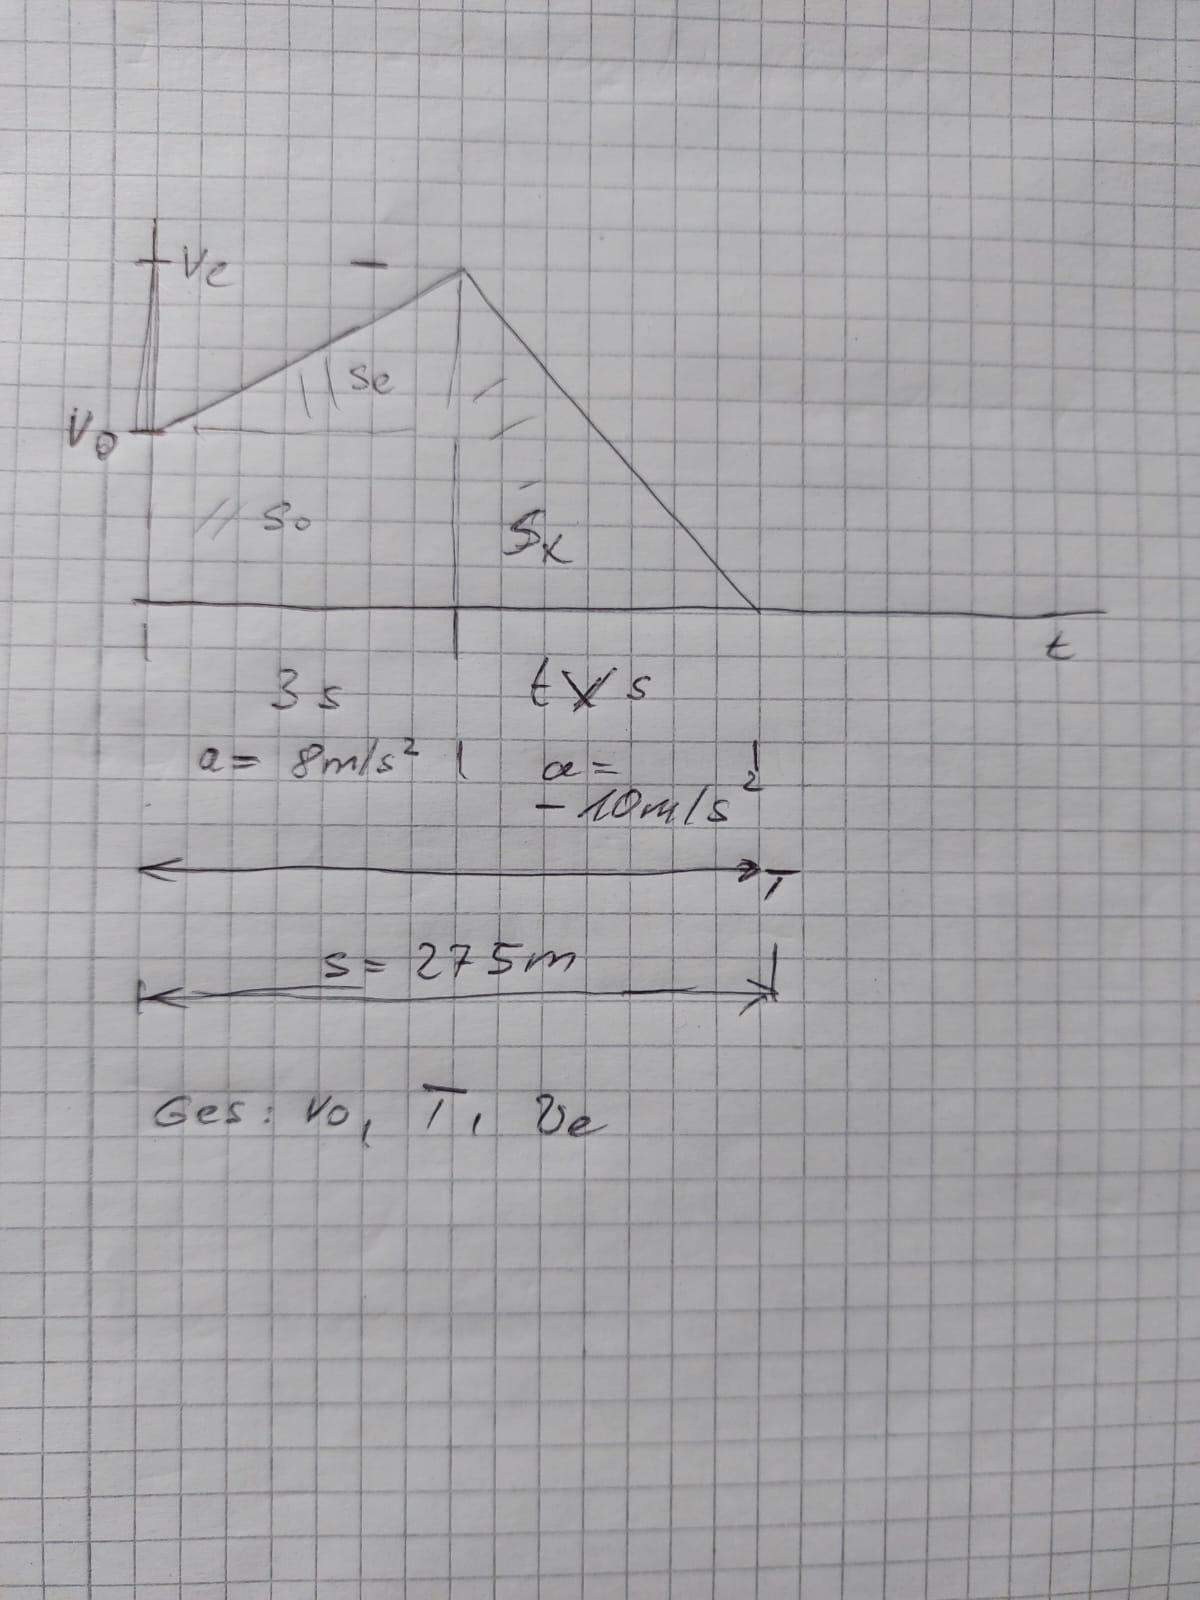 ve
v0
se
s0
sx
t
3 s
tx s
a = 8m/s²
a =
- 10m/s²
T
s = 275m
Ges: v0, T, ve